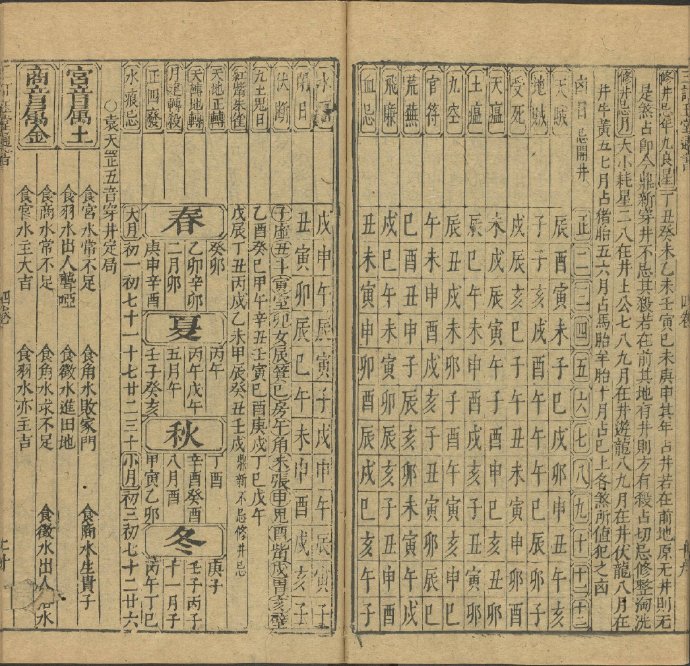 修井忌年九良星丁丑癸未乙未壬寅己未庚申其年占井若在南地原无井則无
星煞占即今鼎新穿井不忌其殺若在前其地有井則方有殺占切忌修整淘洗
修井忌月大小耗星二八在井土公七八九月在井遊龍八九月在井伏龍八月在
井牛黃五七月占豬胎五六月占馬胎羊胎十月占巳上各煞所值犯之凶
凶日忌開井 正二三四五六七八九十十一十二
天賊 辰酉寅未子巳戌卯申丑午亥
地賊 子子亥戌酉午午午巳辰卯子
受死 戌辰亥巳子午丑未寅申卯酉
天瘟 未戌辰寅午子酉申巳亥丑卯
土瘟 辰巳午未申酉戌亥子丑寅卯
九空 辰丑戌未卯子酉午寅亥申巳
官符 午未申酉戌亥子丑寅卯辰巳
荒蕪 巳酉丑申子辰亥卯未寅午戌
飛廉 戌巳午未寅卯辰亥子丑申酉
血忌 丑未寅申卯酉辰戌巳亥午子
水隔 戌申午辰寅子戌申午辰寅子
閉日 丑寅卯辰巳午未申酉戌亥子
伏斷 子虛丑斗寅室卯女辰箕巳房午角未張申鬼酉觜戌胃亥壁
九土鬼日 乙酉癸巳甲午辛丑壬寅己酉庚戌丁巳戊午
紅嘴朱雀 戊辰丁丑丙戌乙未甲辰癸丑壬戌鼎新不忌修井忌
春 夏 秋 冬
天地正轉 癸卯 丙午 庚子
天轉地轉 乙卯辛卯 丙午戊午 辛酉癸酉 壬子丙子
月建轉殺 二月卯 五月午 八月酉 十一月子
正四廢 庚申辛酉 壬子癸亥 甲寅乙卯 丙午丁巳
水痕忌 大月初一初七十一十七廿二三十 小月初三初七十二廿六
○袁天罡五音穿井定局
宮音屬土 食宮水常不足 食角水敗家門 食商水生貴子
食羽水出人聾啞 食徵水進田地
商音屬金 食商水常不足 食角水永不足 食徵水出人
食宮水主大吉 食羽水亦主吉